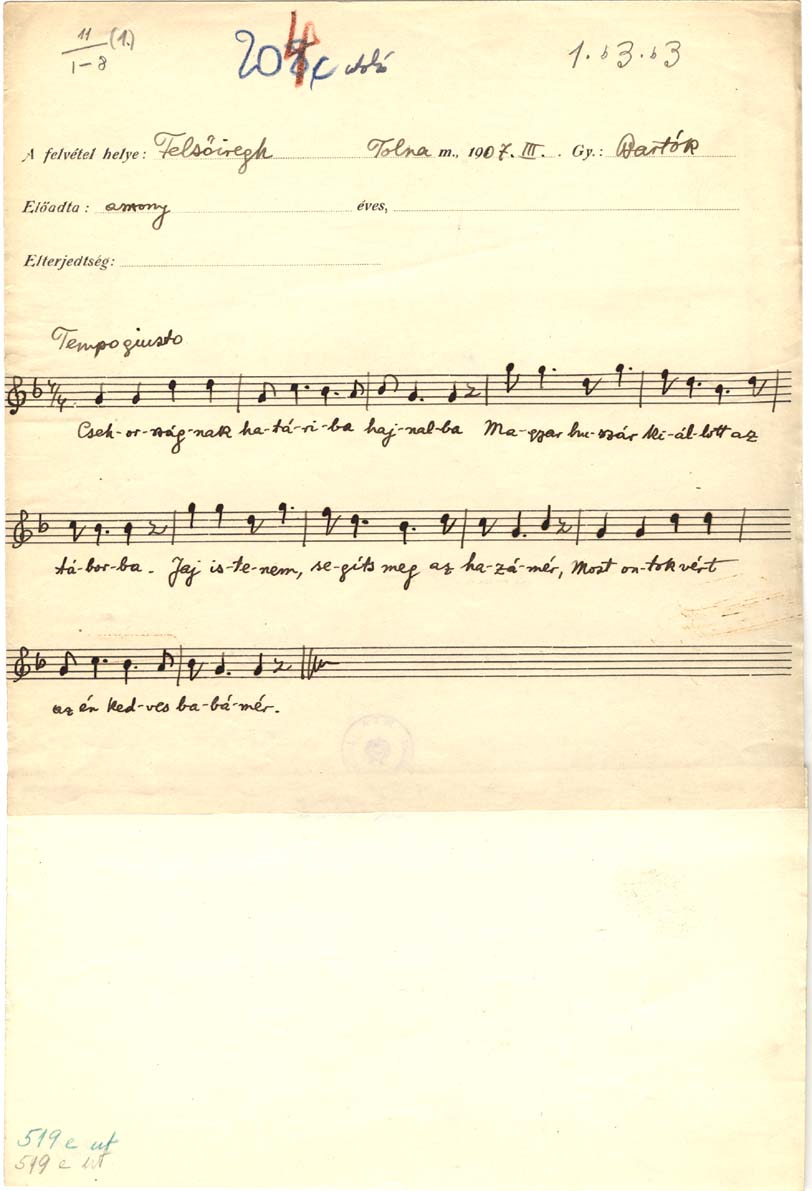 11 (1.)
1-8
1. b3. b3
A felvétel helye: Felsőiregh Tolna m., 1907. III. Gy.: Bartók
Előadta: asszony éves,
Elterjedtség:
Tempo giusto
Cseh-or-szág-nak ha-tá-ri-ba haj-nal-ba Ma-gyar hu-szár ki-ál-lott az
tá-bor-ba. Jaj is-te-nem, se-gíts meg az ha-zá-mér, Most on-tok vért
az én ked-ves ba-bá-mér.
519 e ut
519 e ut